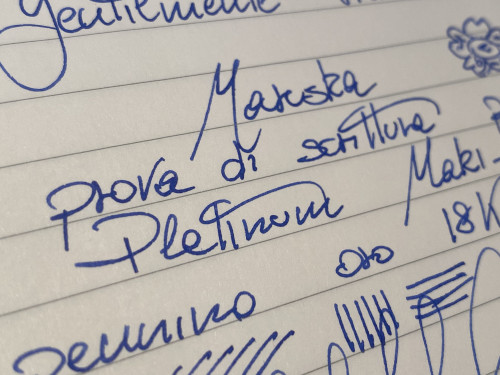 gentilmente
Maruska
prova di scrittura
Platinum Maki
pennino oro 18K